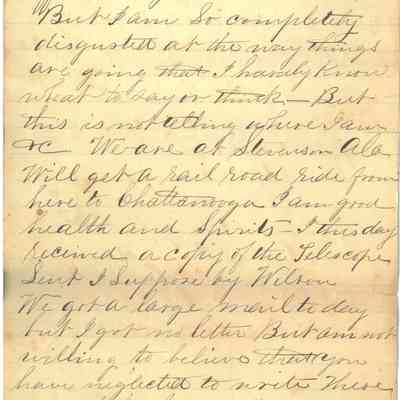 But I am So completely
disgusted at the way things
are going that I hardly know
what to say or think — But
this is not telling where I am
&c We are at Stevenson Ala
Will get a rail road ride from
here to Chattanooga I am good
health and Spirits — I this day
received a copy of the Telescope
Sent I Suppose by Wilson
We got a large mail to day
but I got no letter But am not
willing to believe that you
have neglected to write These